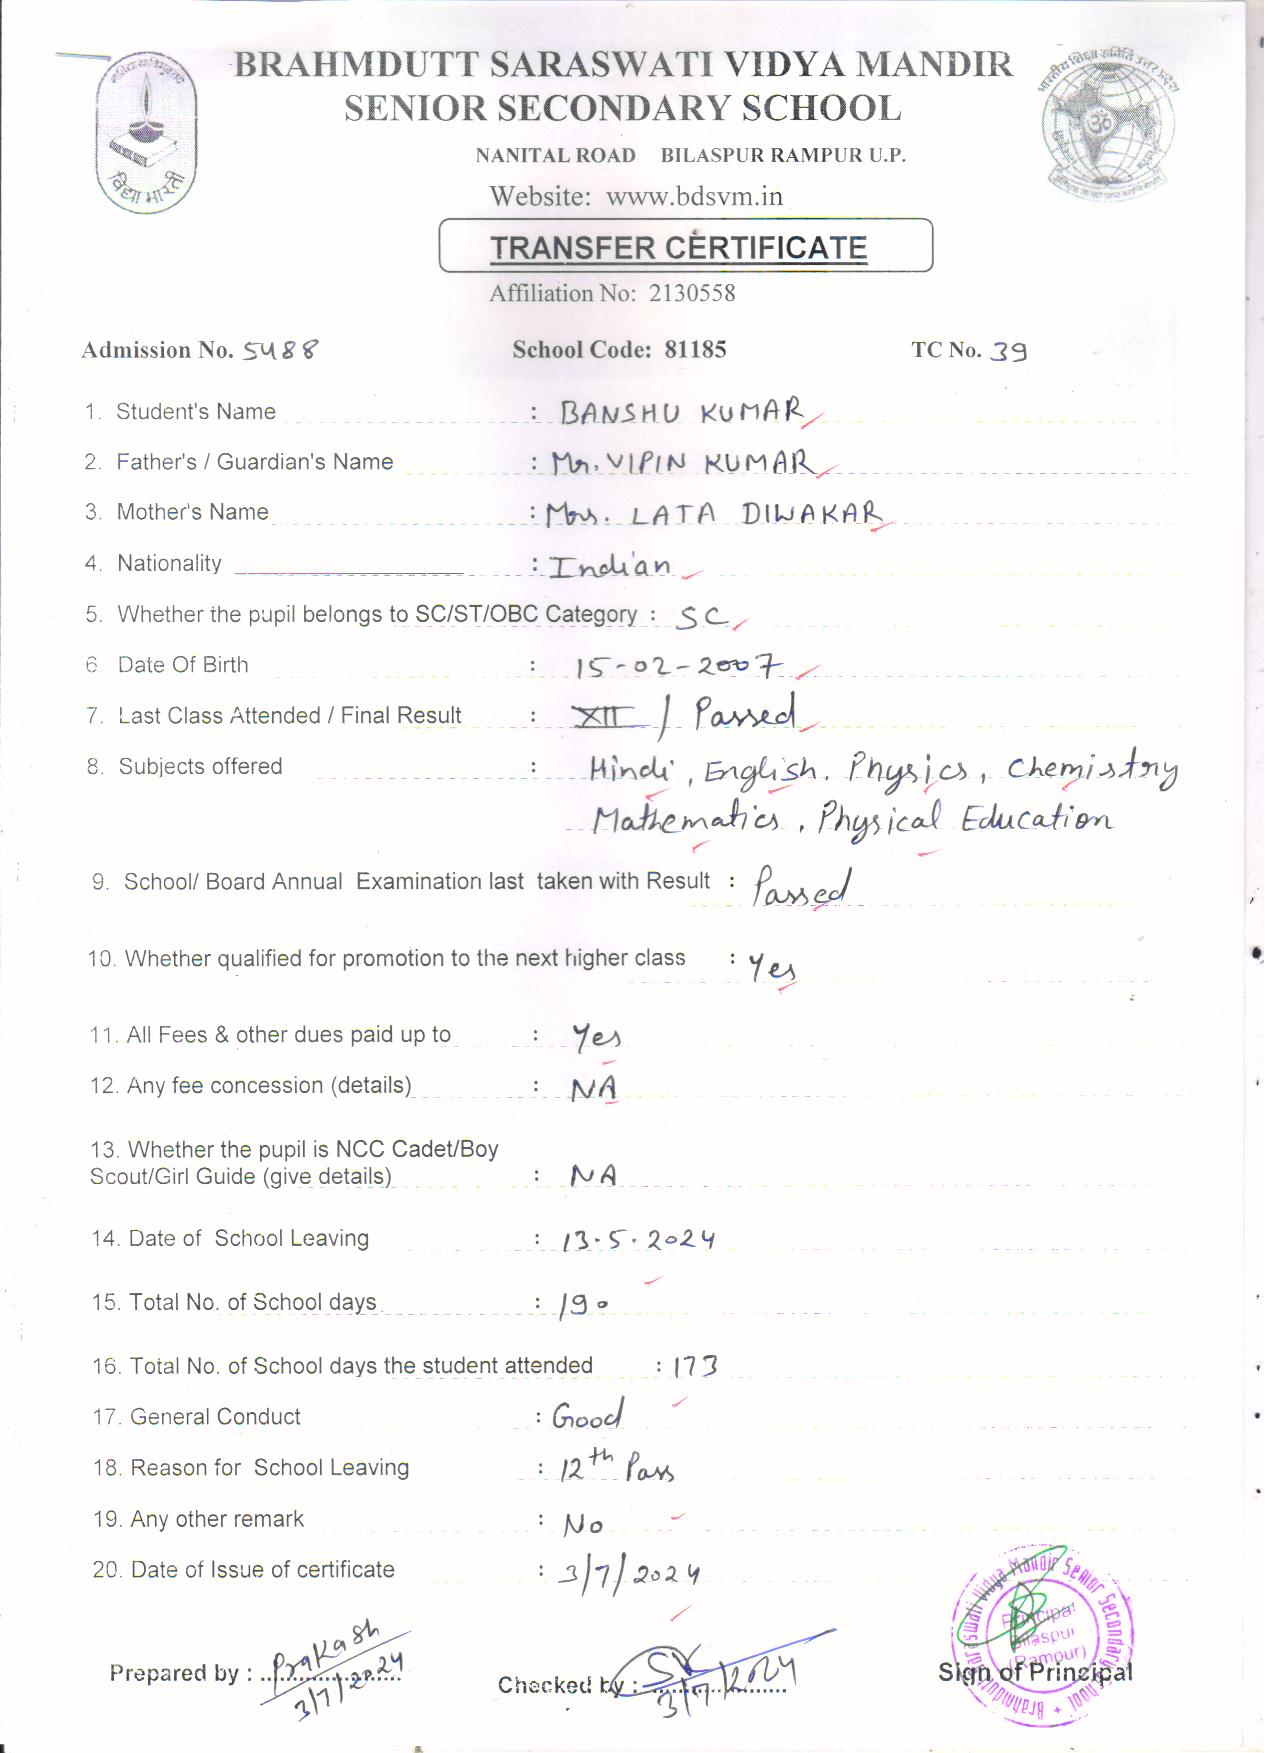 BRAHMDUTT SARASWATI VIDYA MANDIR
SENIOR SECONDARY SCHOOL
NANITAL ROAD BILASPUR RAMPUR U.P.
विद्या भारती
Website: www.bdsvm.in
TRANSFER CERTIFICATE
Affiliation No: 2130558
Admission No. 5488 School Code: 81185 TC No. 39
1. Student's Name : BANSHU KUMAR
2. Father's / Guardian's Name : Mr. VIPIN KUMAR
3. Mother's Name : Mrs. LATA DIWAKAR
4. Nationality : Indian
5. Whether the pupil belongs to SC/ST/OBC Category : SC
6 Date Of Birth : 15-02-2007
7. Last Class Attended / Final Result : XII / Passed
8. Subjects offered : Hindi, English. Physics, Chemistry
Mathematics, Physical Education
9. School/ Board Annual Examination last taken with Result : Passed
10. Whether qualified for promotion to the next higher class : Yes
11. All Fees & other dues paid up to : Yes
12. Any fee concession (details) : NA
13. Whether the pupil is NCC Cadet/Boy
Scout/Girl Guide (give details) : NA
14. Date of School Leaving : 13.5.2024
15. Total No. of School days : 190
16. Total No. of School days the student attended : 173
17. General Conduct : Good
18. Reason for School Leaving : 12th Pass
19. Any other remark : No
20. Date of Issue of certificate : 3/7/2024
Prepared by : Prakash
3/7/2024
Checked by :
3/7/2024
Principal
Bilaspur
(Rampur)
Sign of Principal